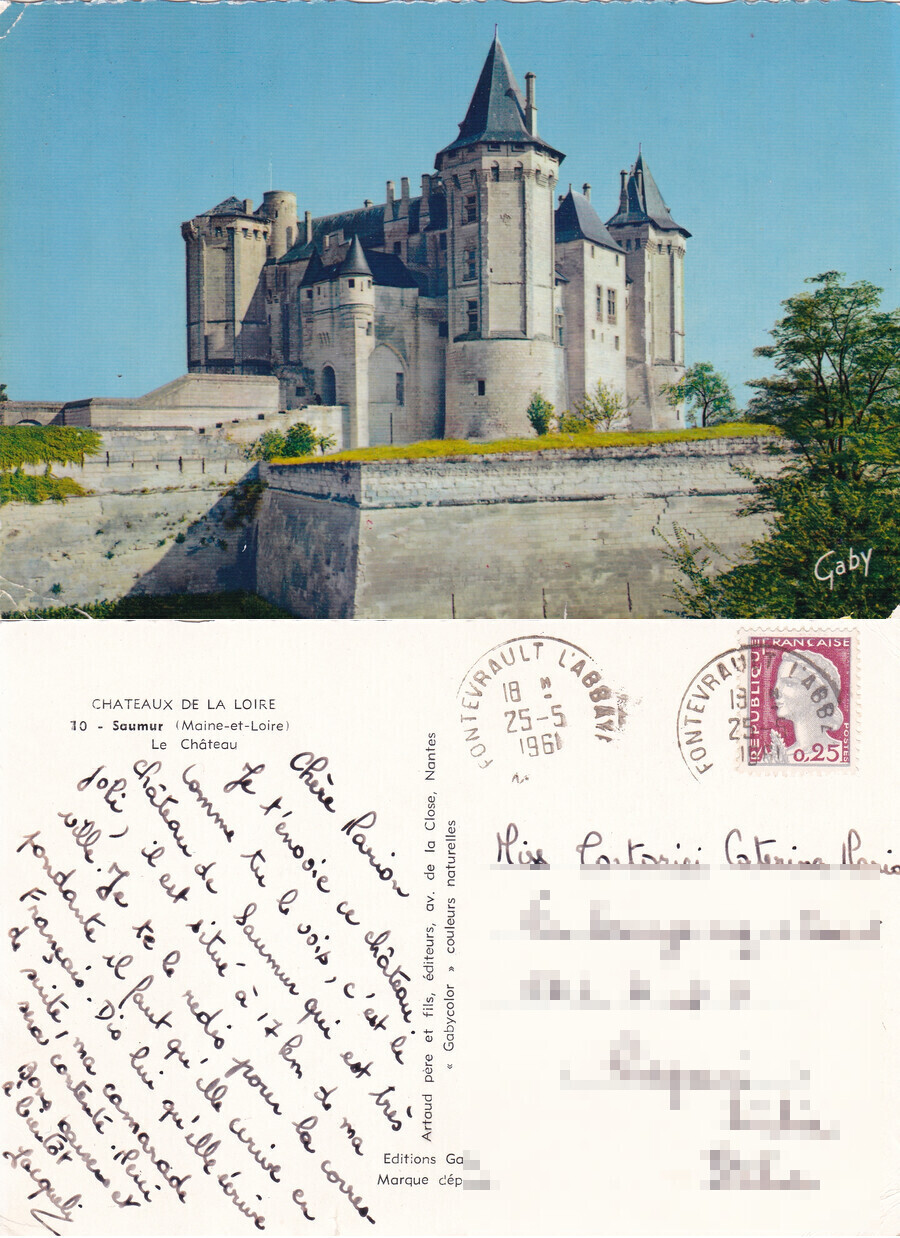 Gaby
CHATEAUX DE LA LOIRE
10 - Saumur (Maine-et-Loire)
Le Château
Chère Marion
Je t'envoie ce château.
Comme tu le vois, c'est le
château de Saumur qui est très
joli, il est situé à 17 km de ma
ville. Je te le redis pour la corres-
pondante il faut qu'elle écrive en
Français. Dis lui qu'elle écrive
de suite, ma camarade
sera contente.
Bons baisers et
à bientôt
Jacquely
Artaud père et fils, éditeurs, av. de la Close, Nantes
« Gabycolor » couleurs naturelles
Editions Ga
Marque dép
FONTEVRAULT L'ABBAYE
18 H
25-5
1961
FONTEVRAULT L'ABB
25
RÉPUBLIQUE FRANÇAISE
0,25
POSTES
Miss Caterina Maria